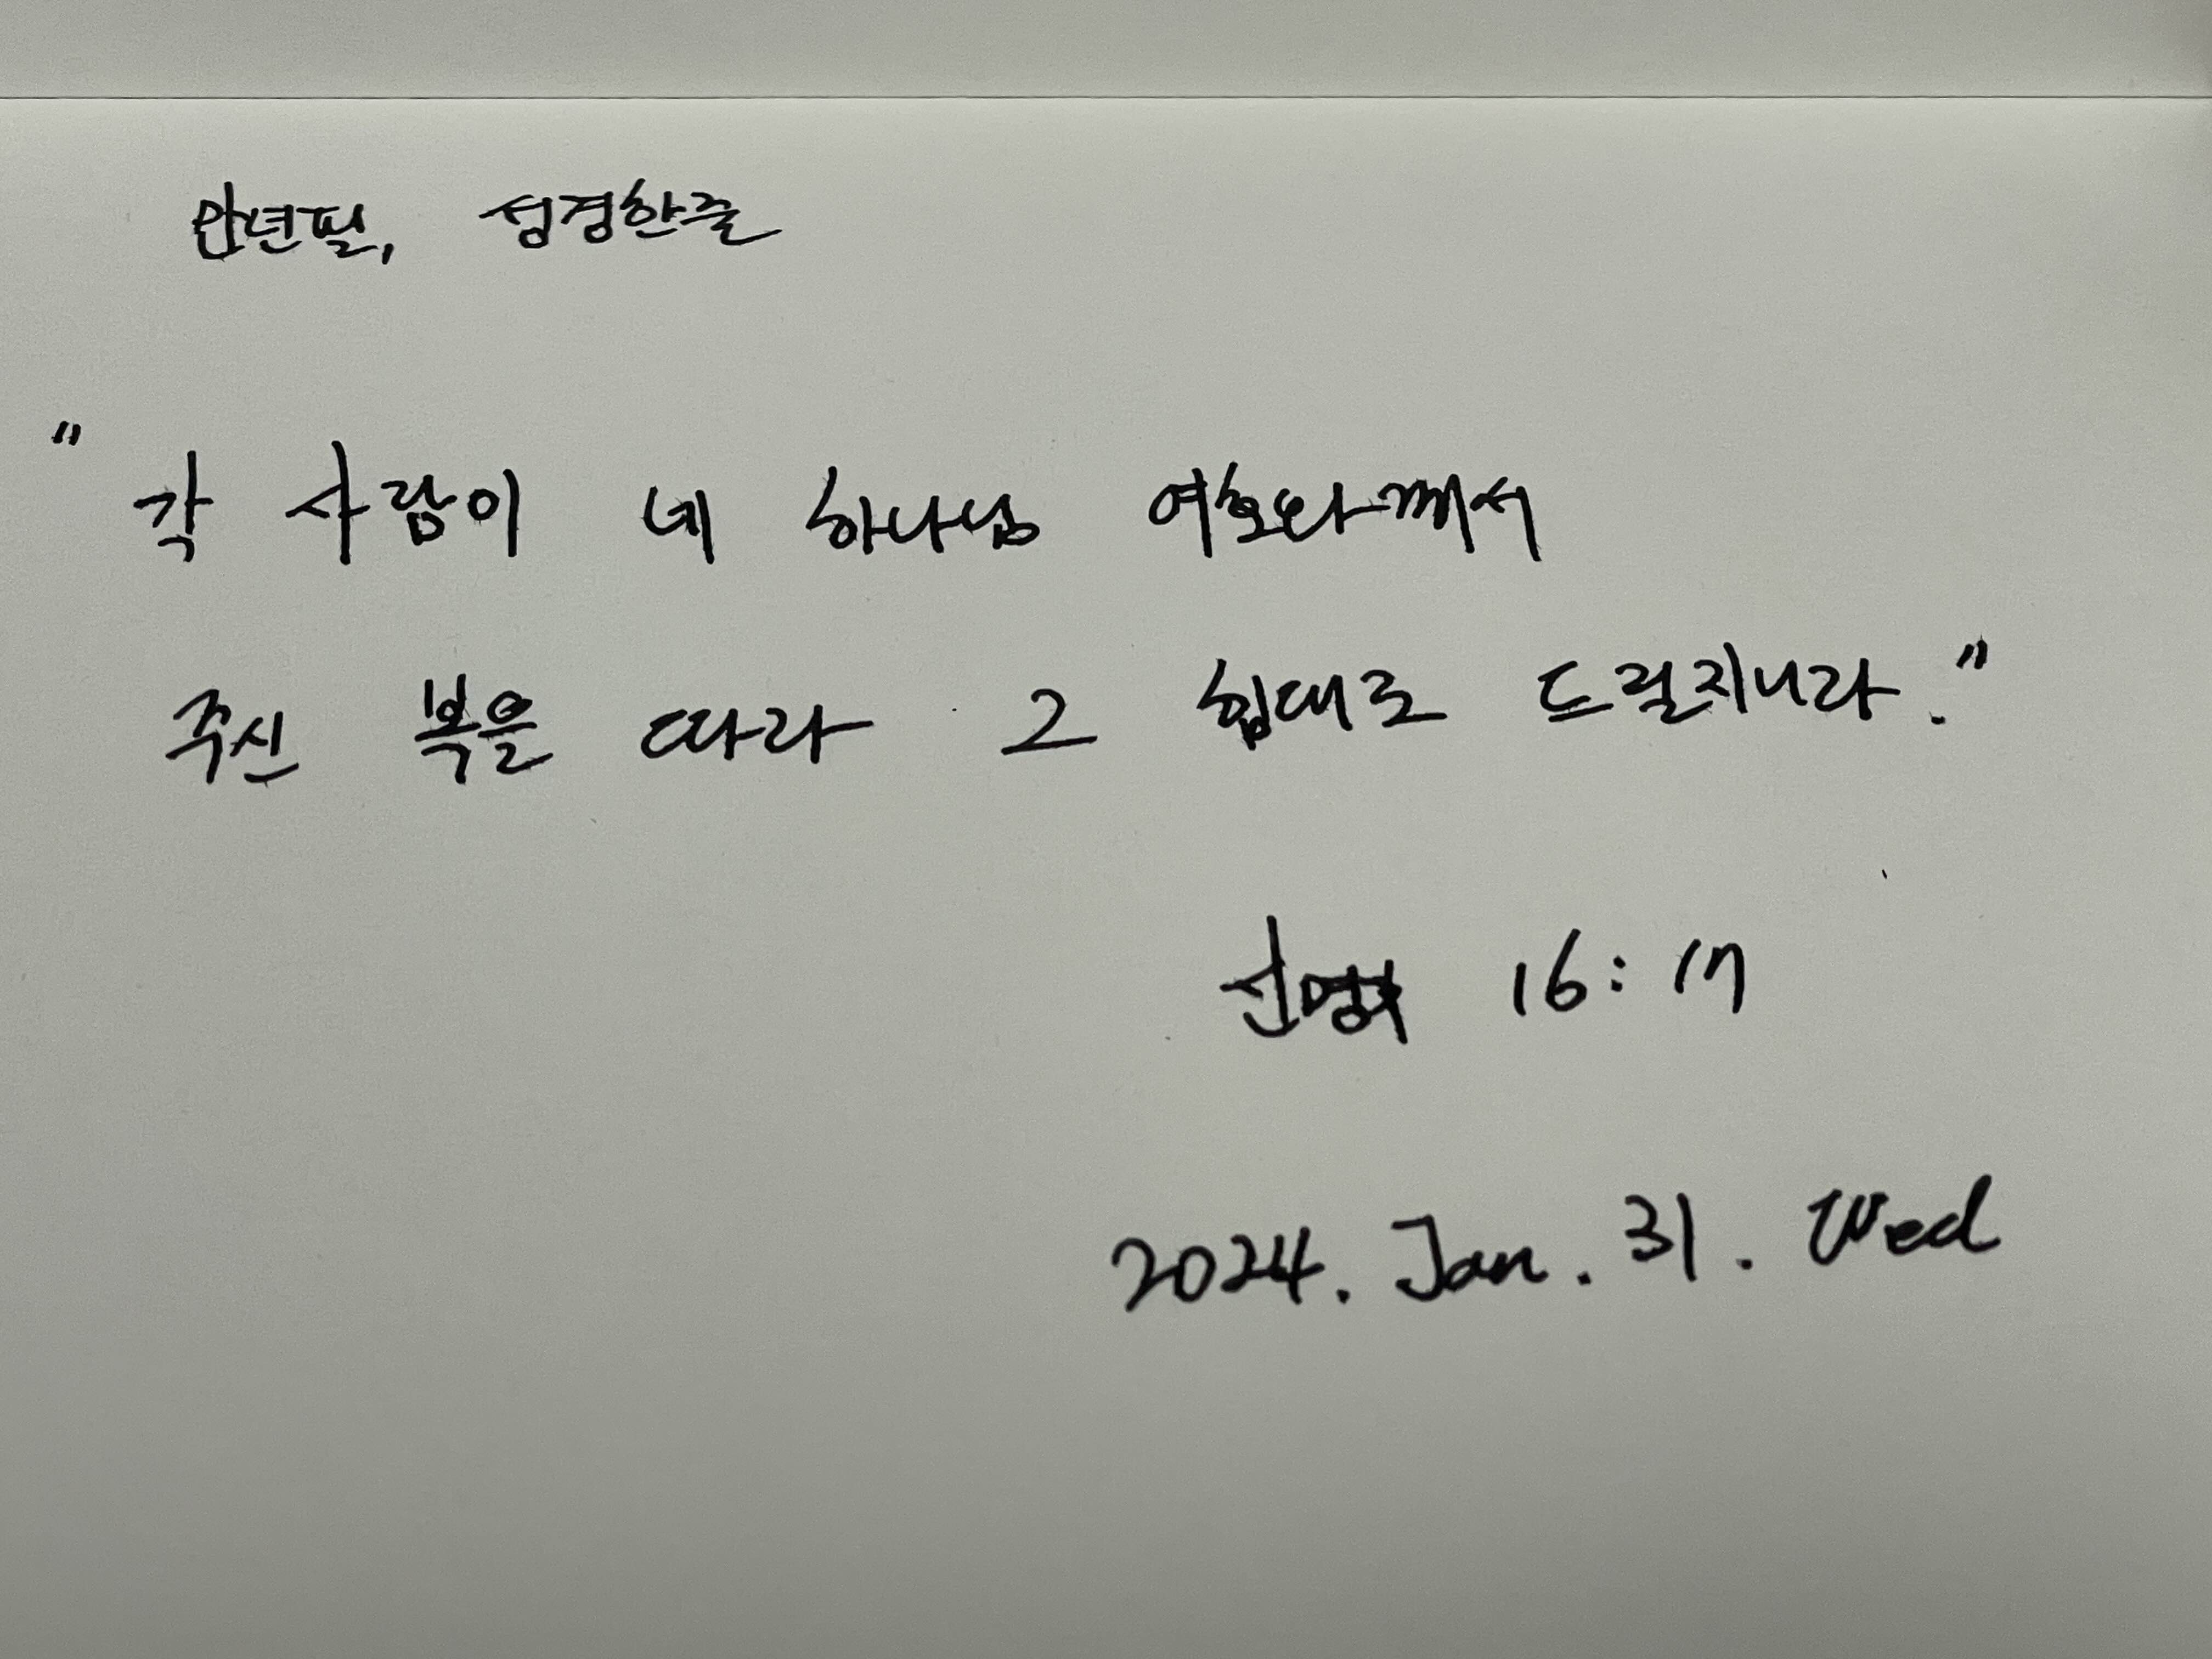 만년필, 성경한줄
"각 사람이 네 하나님 여호와께서
주신 복을 따라 그 힘대로 드릴지니라."
16:17
2024. Jan. 31. Wed